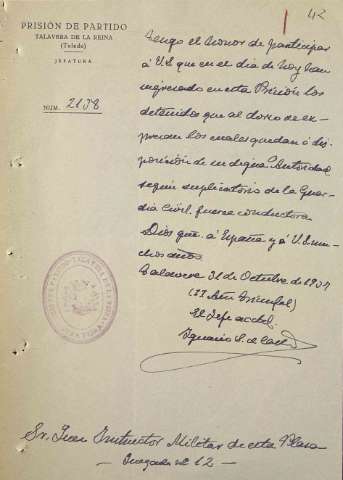 42
PRISIÓN DE PARTIDO
TALAVERA DE LA REINA
(Toledo)
JEFATURA
NUM. 2138
Tengo el honor de participar
á U.S. que en el dia de hoy han
ingresado en esta Prisión los
detenidos que al dorso de ex-
presan los cuales quedan á dis-
posición de su digna Autoridad
según suplicatorio de la Guar-
dia Civil, fuerza conductora
Dios gue. á España y á U.S. mu-
chos años.
Talavera 31 de Octubre de 1937
(II Año Triunfal)
El Jefe acctal.
Ignacio
Sr. Juez Instructor Militar de esta Plaza
- Juzgado nº 12 -